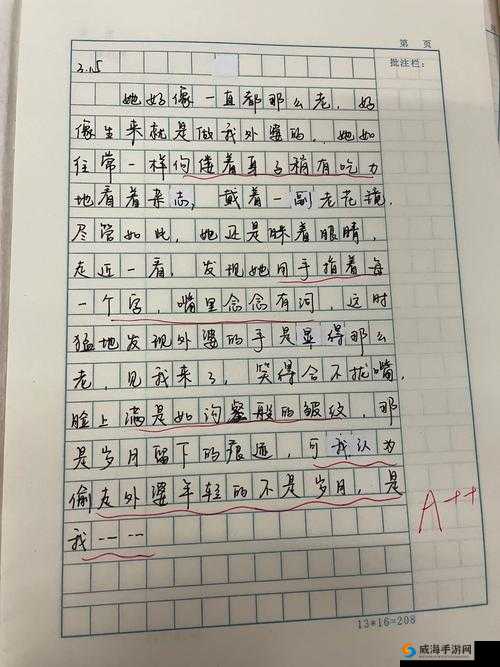 第 页
批注栏:
3.15
她好像一直都那么老，好
像生来就是做我外婆的，她如
往常一样佝偻着身子稍有吃力
地看着杂志，戴着一副老花镜，
尽管如此，她还是眯着眼睛，
走近一看，发现她用手指着每
一个字，嘴里念念有词，这时
猛地发现外婆的手是显得那么
老，见我来了，笑得合不拢嘴，
脸上满是如沟壑般的皱纹，那
是岁月留下的痕迹，可我认为
偷走外婆年轻的不是岁月，是
我----
A++
13*16=208
威海手游网